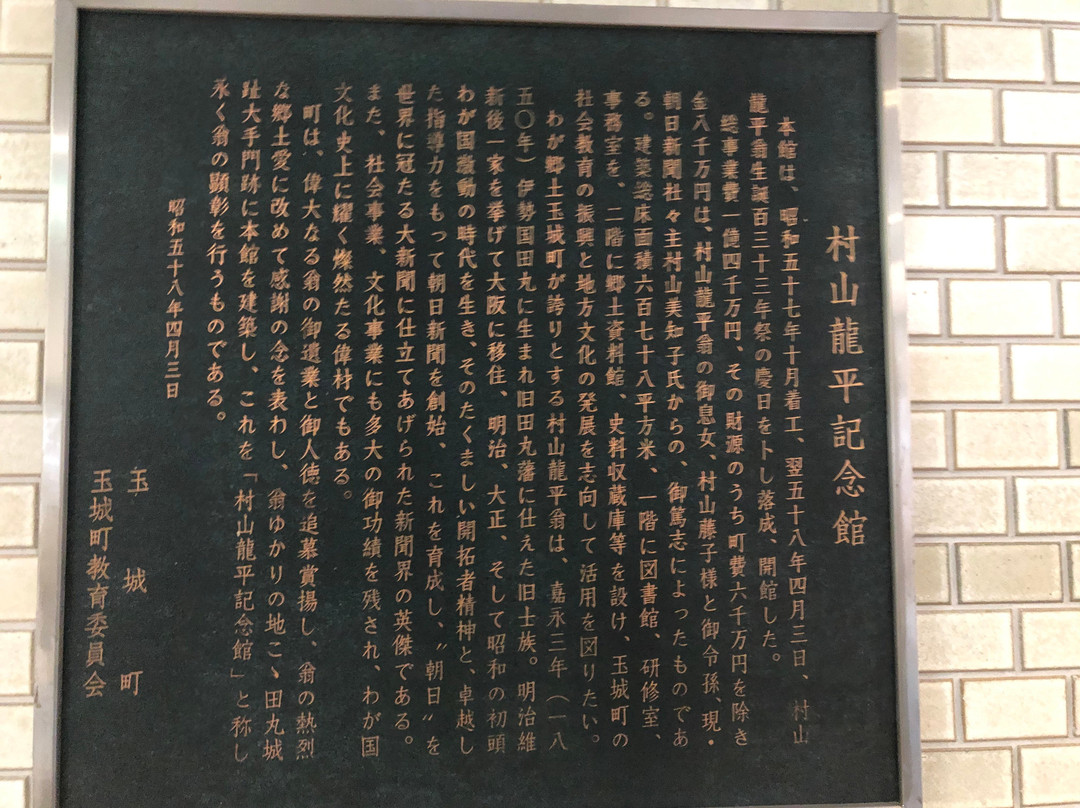 村山龍平記念館
本館は、昭和五十七年十月着工、翌五十八年四月三日、村山
龍平翁生誕百三十三年祭の慶日をト し落成、開館した。
総事業費一億四千万円、その財源のうち町費六千万円を除き
金八千万円は、村山龍平翁の御息女、村山藤子様と御令孫、現・
朝日新聞社々主村山美知子氏からの、御篤志によったものであ
る。建築総床面積六百七十八平方米、一階に図書館、研修室、
事務室を、二階に郷土資料館、史料収蔵庫等を設け、玉城町の
社会教育の振興と地方文化の発展を志向して活用を図りたい。
わが郷土玉城町が誇りとする村山龍平翁は、嘉永三年（一八
五〇年）伊勢国田丸に生まれ旧田丸藩に仕えた旧士族。明治維
新後一家を挙げて大阪に移住、明治、大正、そして昭和の初頭
わが国激動の時代を生き、そのたくましい開拓者精神と、卓越し
た指導力をもって朝日新聞を創始、これを育成し、〝朝日〟を
世界に冠たる大新聞に仕立てあげられた新聞界の英傑である。
また、社会事業、文化事業にも多大の御功績を残され、わが国
文化史上に耀く燦然たる偉材でもある。
町は、偉大なる翁の御遺業と御人徳を追慕賞揚し、翁の熱烈
な郷土愛に改めて感謝の念を表わし、翁ゆかりの地こゝ田丸城
趾大手門跡に本館を建築し、これを「村山龍平記念館」と称し
永く翁の顕彰を行うものである。
昭和五十八年四月三日
玉城町
玉城町教育委員会